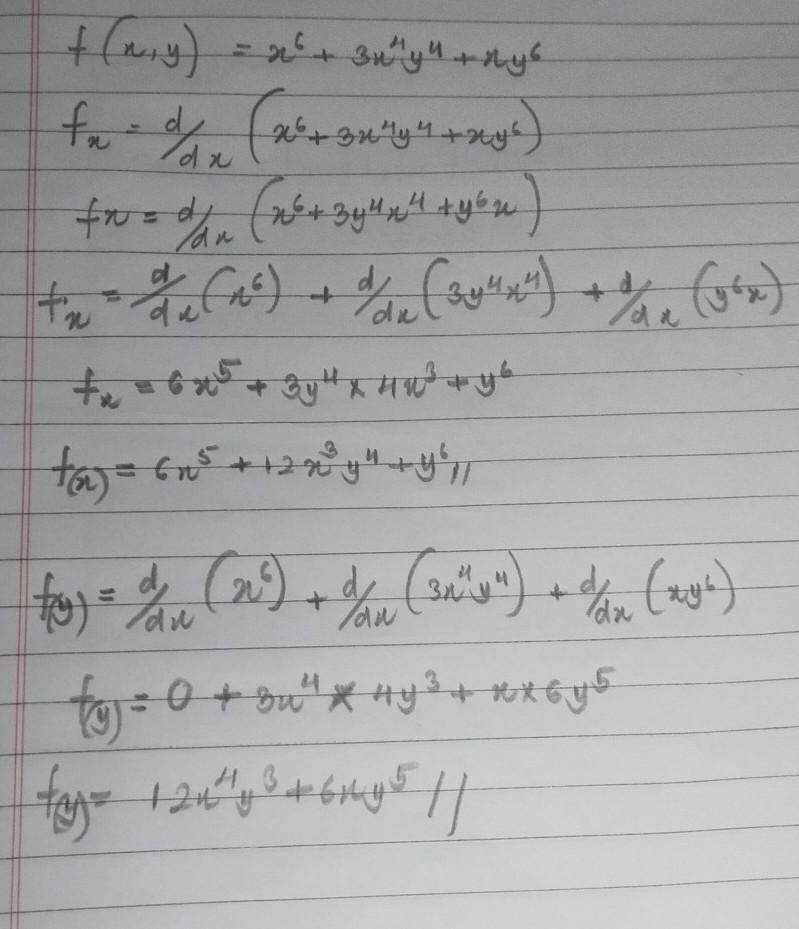 f(x,y) = x⁶ + 3x⁴y⁴ + xy⁶
fₓ = d/dx (x⁶ + 3x⁴y⁴ + xy⁶)
fx = d/dx (x⁶ + 3y⁴x⁴ + y⁶x)
fₓ = d/dx (x⁶) + d/dx (3y⁴x⁴) + d/dx (y⁶x)
fₓ = 6x⁵ + 3y⁴ × 4x³ + y⁶
f(x) = 6x⁵ + 12x³y⁴ + y⁶ //
f(y) = d/dx (x⁶) + d/dx (3x⁴y⁴) + d/dx (xy⁶)
f(y) = 0 + 3x⁴ × 4y³ + x × 6y⁵
f(y) = 12x⁴y³ + 6xy⁵ //